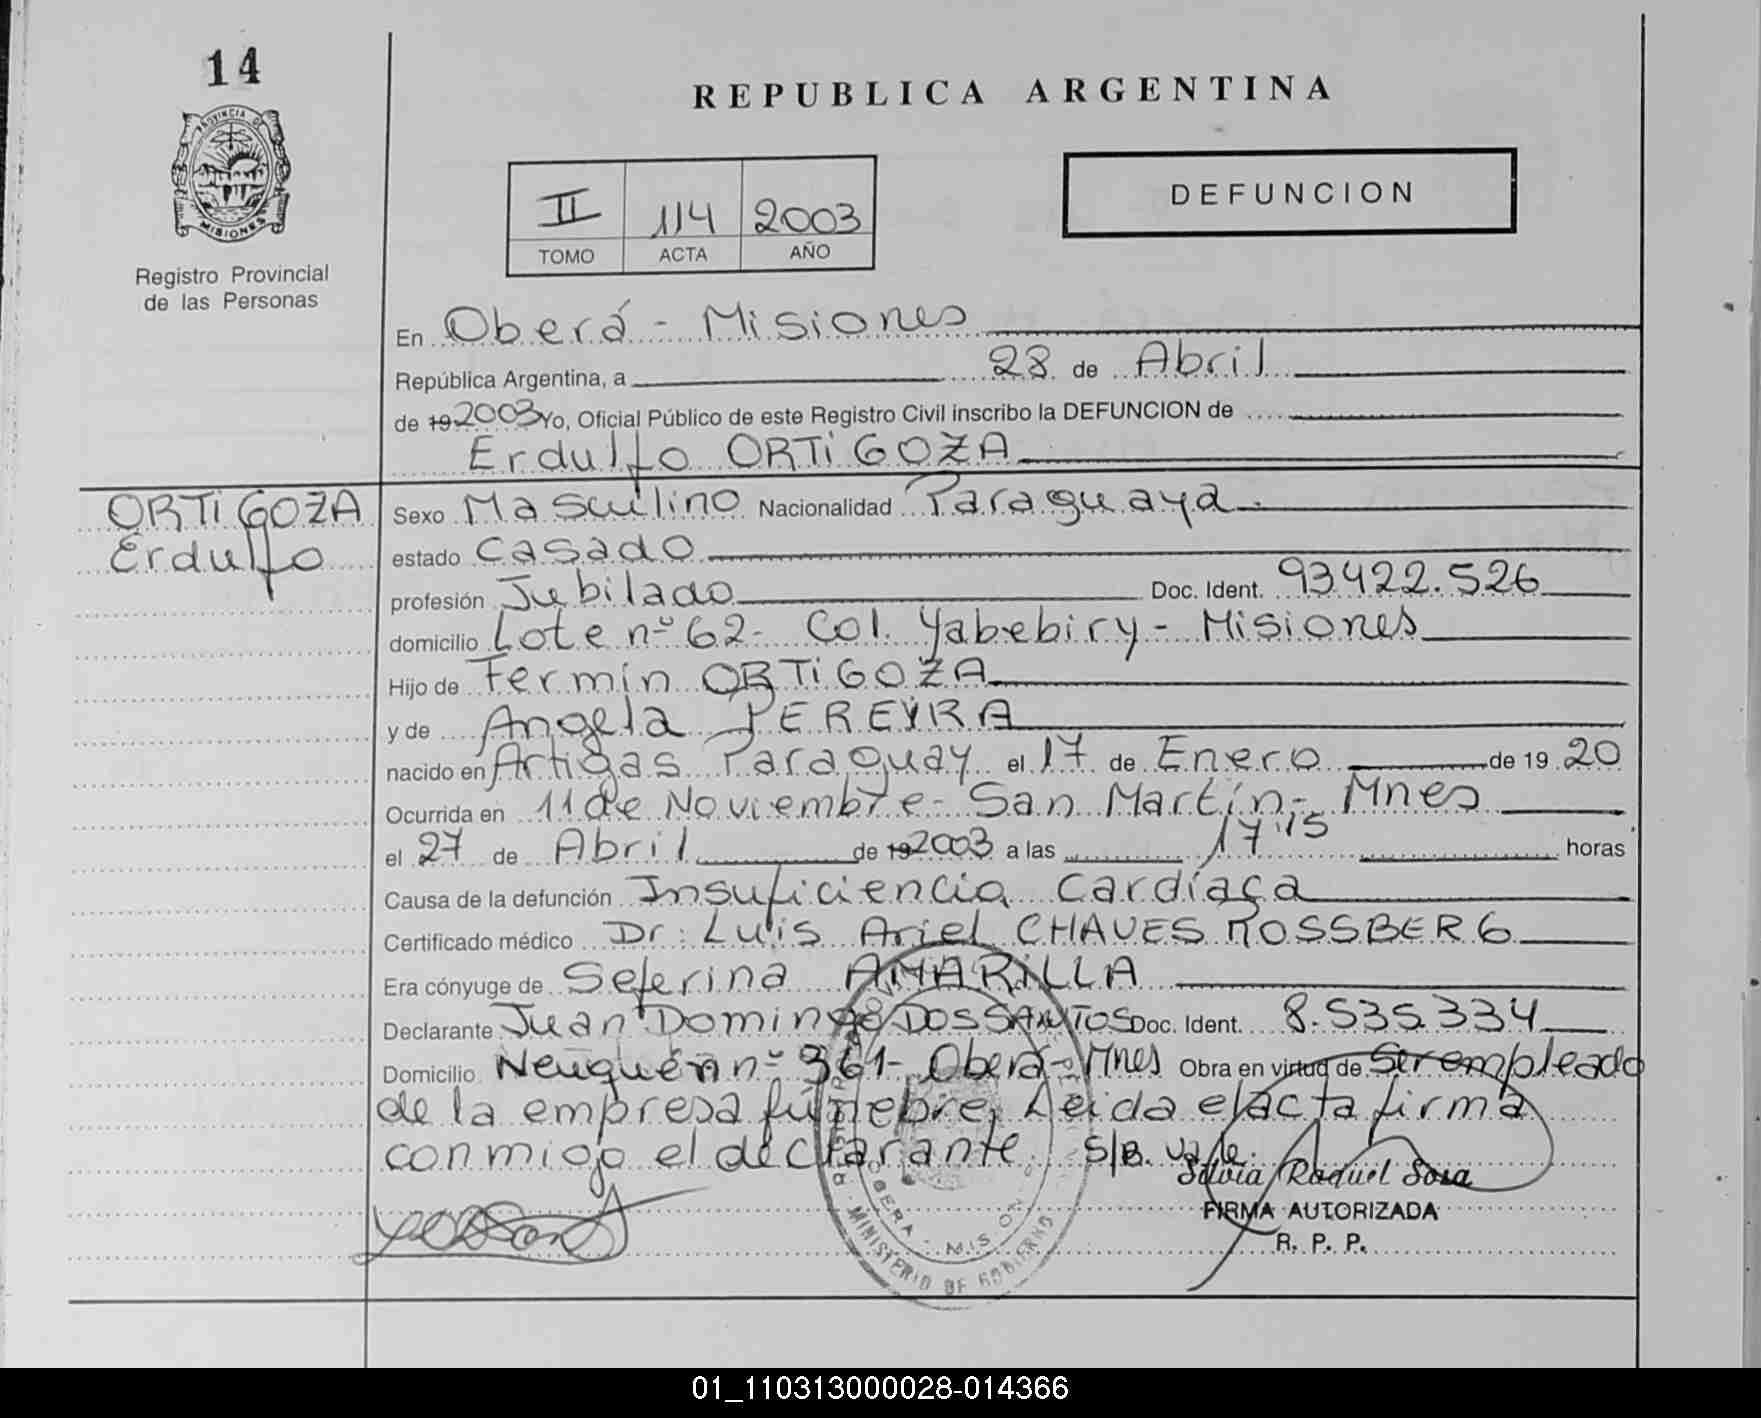 14
REPUBLICA ARGENTINA
PROVINCIA DE
MISIONES
Registro Provincial
de las Personas
II 114 2003
TOMO ACTA AÑO
DEFUNCION
En Oberá - Misiones
República Argentina, a 28 de Abril
de 19 2003 Yo, Oficial Público de este Registro Civil inscribo la DEFUNCION de
Erdulfo ORTiGOZA
ORTiGOZA
Erdulfo
Sexo Masculino Nacionalidad Paraguaya.
estado casado
profesión Jubilado Doc. Ident. 93.422.526
domicilio Lote nº 62- Col. Yabebiry - Misiones
Hijo de Fermín ORTiGOZA
y de Angela PEREYRA
nacido en Artigas Paraguay el 17 de Enero de 19 20
Ocurrida en 11 de Noviembre - San Martín - Mnes
el 27 de Abril de 19 2003 a las 17:15 horas
Causa de la defunción Insuficiencia cardíaca
Certificado médico Dr. Luis Ariel CHAVES ROSSBERG
Era cónyuge de Seferina AMARiLLA
Declarante Juan Domingo DOS SANTOS Doc. Ident. 8.535.334
Domicilio Neuquén nº 361- Oberá - Mnes Obra en virtud de Ser empleado
de la empresa fúnebre, Leida el acta firma
conmigo el declarante S/B. Vale.
Silvia Raquel Sosa
FIRMA AUTORIZADA
R. P. P.
OBERA - MISIONES
MINISTERIO DE GOBIERNO
01_110313000028-014366